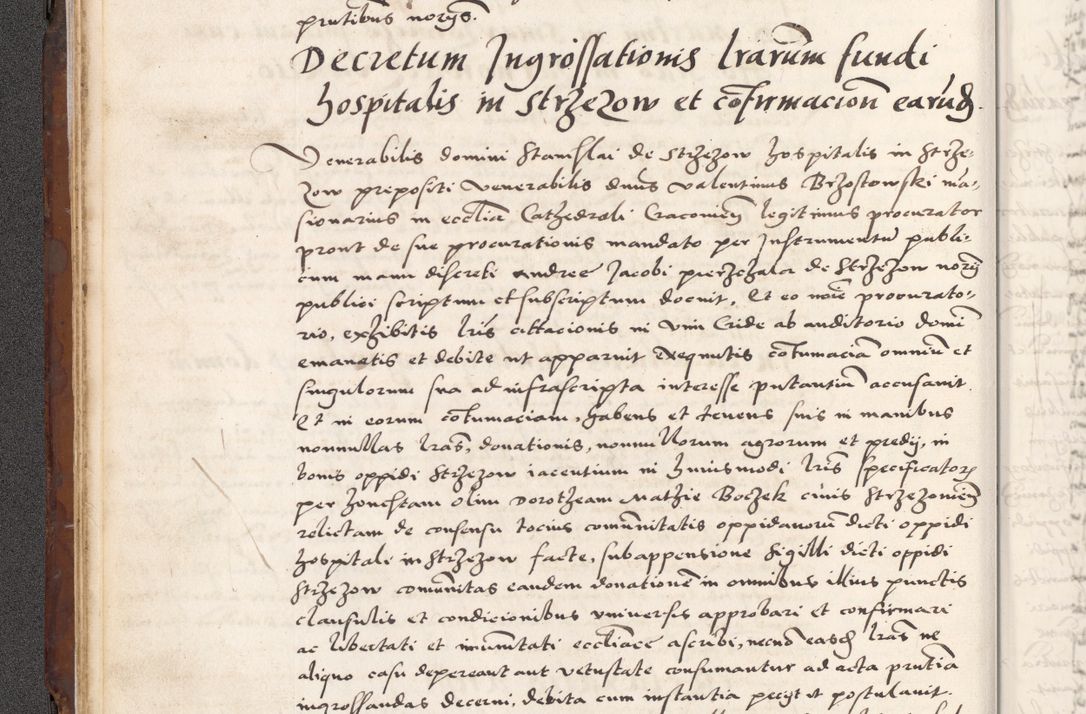 prntibus norys.
Decretum Ingrossationis lrarum fundi
hospitalis in Strzezow et cofirmacion earundem.
Venerabilis domini Stanislai de Strzezow hospitalis in Strze-
zow prepositi venerabilis dnus Valentinus Brzostowski ma-
sionarius in ecclia Cathedrali Cracovien legitimus procurator
prout de sue procurationis mandato per Instrumentu publi-
cum manu discreti Andree Jacobi pierzchala de Strzezow nory
publici scriptum et subscriptum docuit, Et eo noie procurato-
rio, exhibitis lris cittacionis in vim Cride ab auditorio domi
emanatis et debite ut apparuit exequutis cotumacia omniu et
singulorum sua ad infrascripta interesse putantiu accusavit
Et in eorum cotumaciam, habens et tenens suis in manibus
nonnullas lras, donationis, nonnullorum agrorum et predij, in
bonis oppidi Strzezow iacentium in huiusmodi lris specificatorum
per honestam olim Dorotheam Mathie Boczek civis Strzezowien
relictam de consensu tocius comunitatis oppidanoru dicti oppidi
hospitali in Strzezow facte, sub appensione sigilli dicti oppidi
Strzezow comunitas eandem donatione in omnibus illius punctis
clausulis et condicionibus universis approbari et confirmari
ac libertati et imunitati eccliace ascribi, necno easdem lras ne
aliquo casu depereant aut vetustate consumantur ad acta prntia
ingrossandas decerni, debita cum instantia pecijt et postulavit.